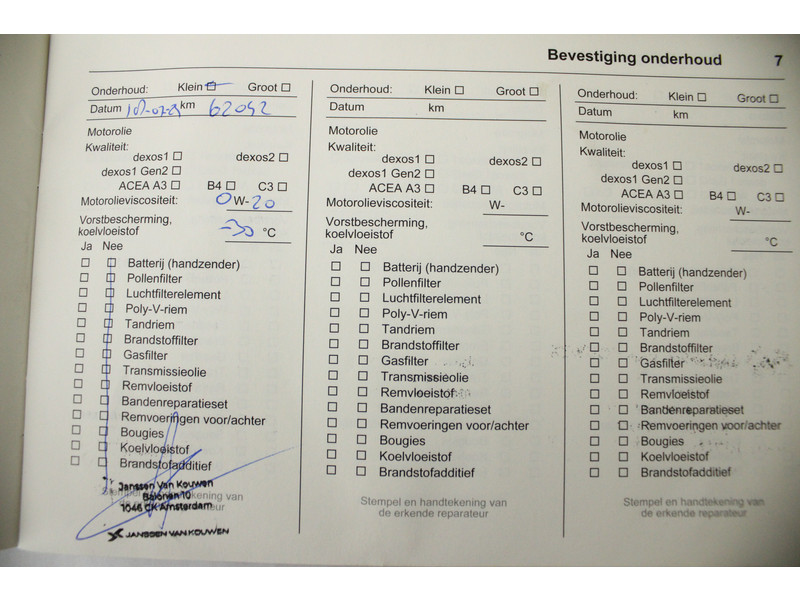 Bevestiging onderhoud 7
Onderhoud: Klein Groot
Datum km 62042
Motorolie
Kwaliteit:
dexos1 dexos2
dexos1 Gen2
ACEA A3 B4 C3
Motorolieviscositeit: 0W-20
Vorstbescherming,
koelvloeistof -30 °C
Ja Nee
Batterij (handzender)
Pollenfilter
Luchtfilterelement
Poly-V-riem
Tandriem
Brandstoffilter
Gasfilter
Transmissieolie
Remvloeistof
Bandenreparatieset
Remvoeringen voor/achter
Bougies
Koelvloeistof
Brandstofadditief
Janssen Van Kouwen
1046 CK Amsterdam
JANSSEN VAN KOUWEN
Onderhoud: Klein Groot
Datum km
Motorolie
Kwaliteit:
dexos1 dexos2
dexos1 Gen2
ACEA A3 B4 C3
Motorolieviscositeit: W-
Vorstbescherming,
koelvloeistof °C
Ja Nee
Batterij (handzender)
Pollenfilter
Luchtfilterelement
Poly-V-riem
Tandriem
Brandstoffilter
Gasfilter
Transmissieolie
Remvloeistof
Bandenreparatieset
Remvoeringen voor/achter
Bougies
Koelvloeistof
Brandstofadditief
Stempel en handtekening van
de erkende reparateur
Onderhoud: Klein Groot
Datum km
Motorolie
Kwaliteit:
dexos1 dexos2
dexos1 Gen2
ACEA A3 B4 C3
Motorolieviscositeit: W-
Vorstbescherming,
koelvloeistof °C
Ja Nee
Batterij (handzender)
Pollenfilter
Luchtfilterelement
Poly-V-riem
Tandriem
Brandstoffilter
Gasfilter
Transmissieolie
Remvloeistof
Bandenreparatieset
Remvoeringen voor/achter
Bougies
Koelvloeistof
Brandstofadditief
Stempel en handtekening van
de erkende reparateur